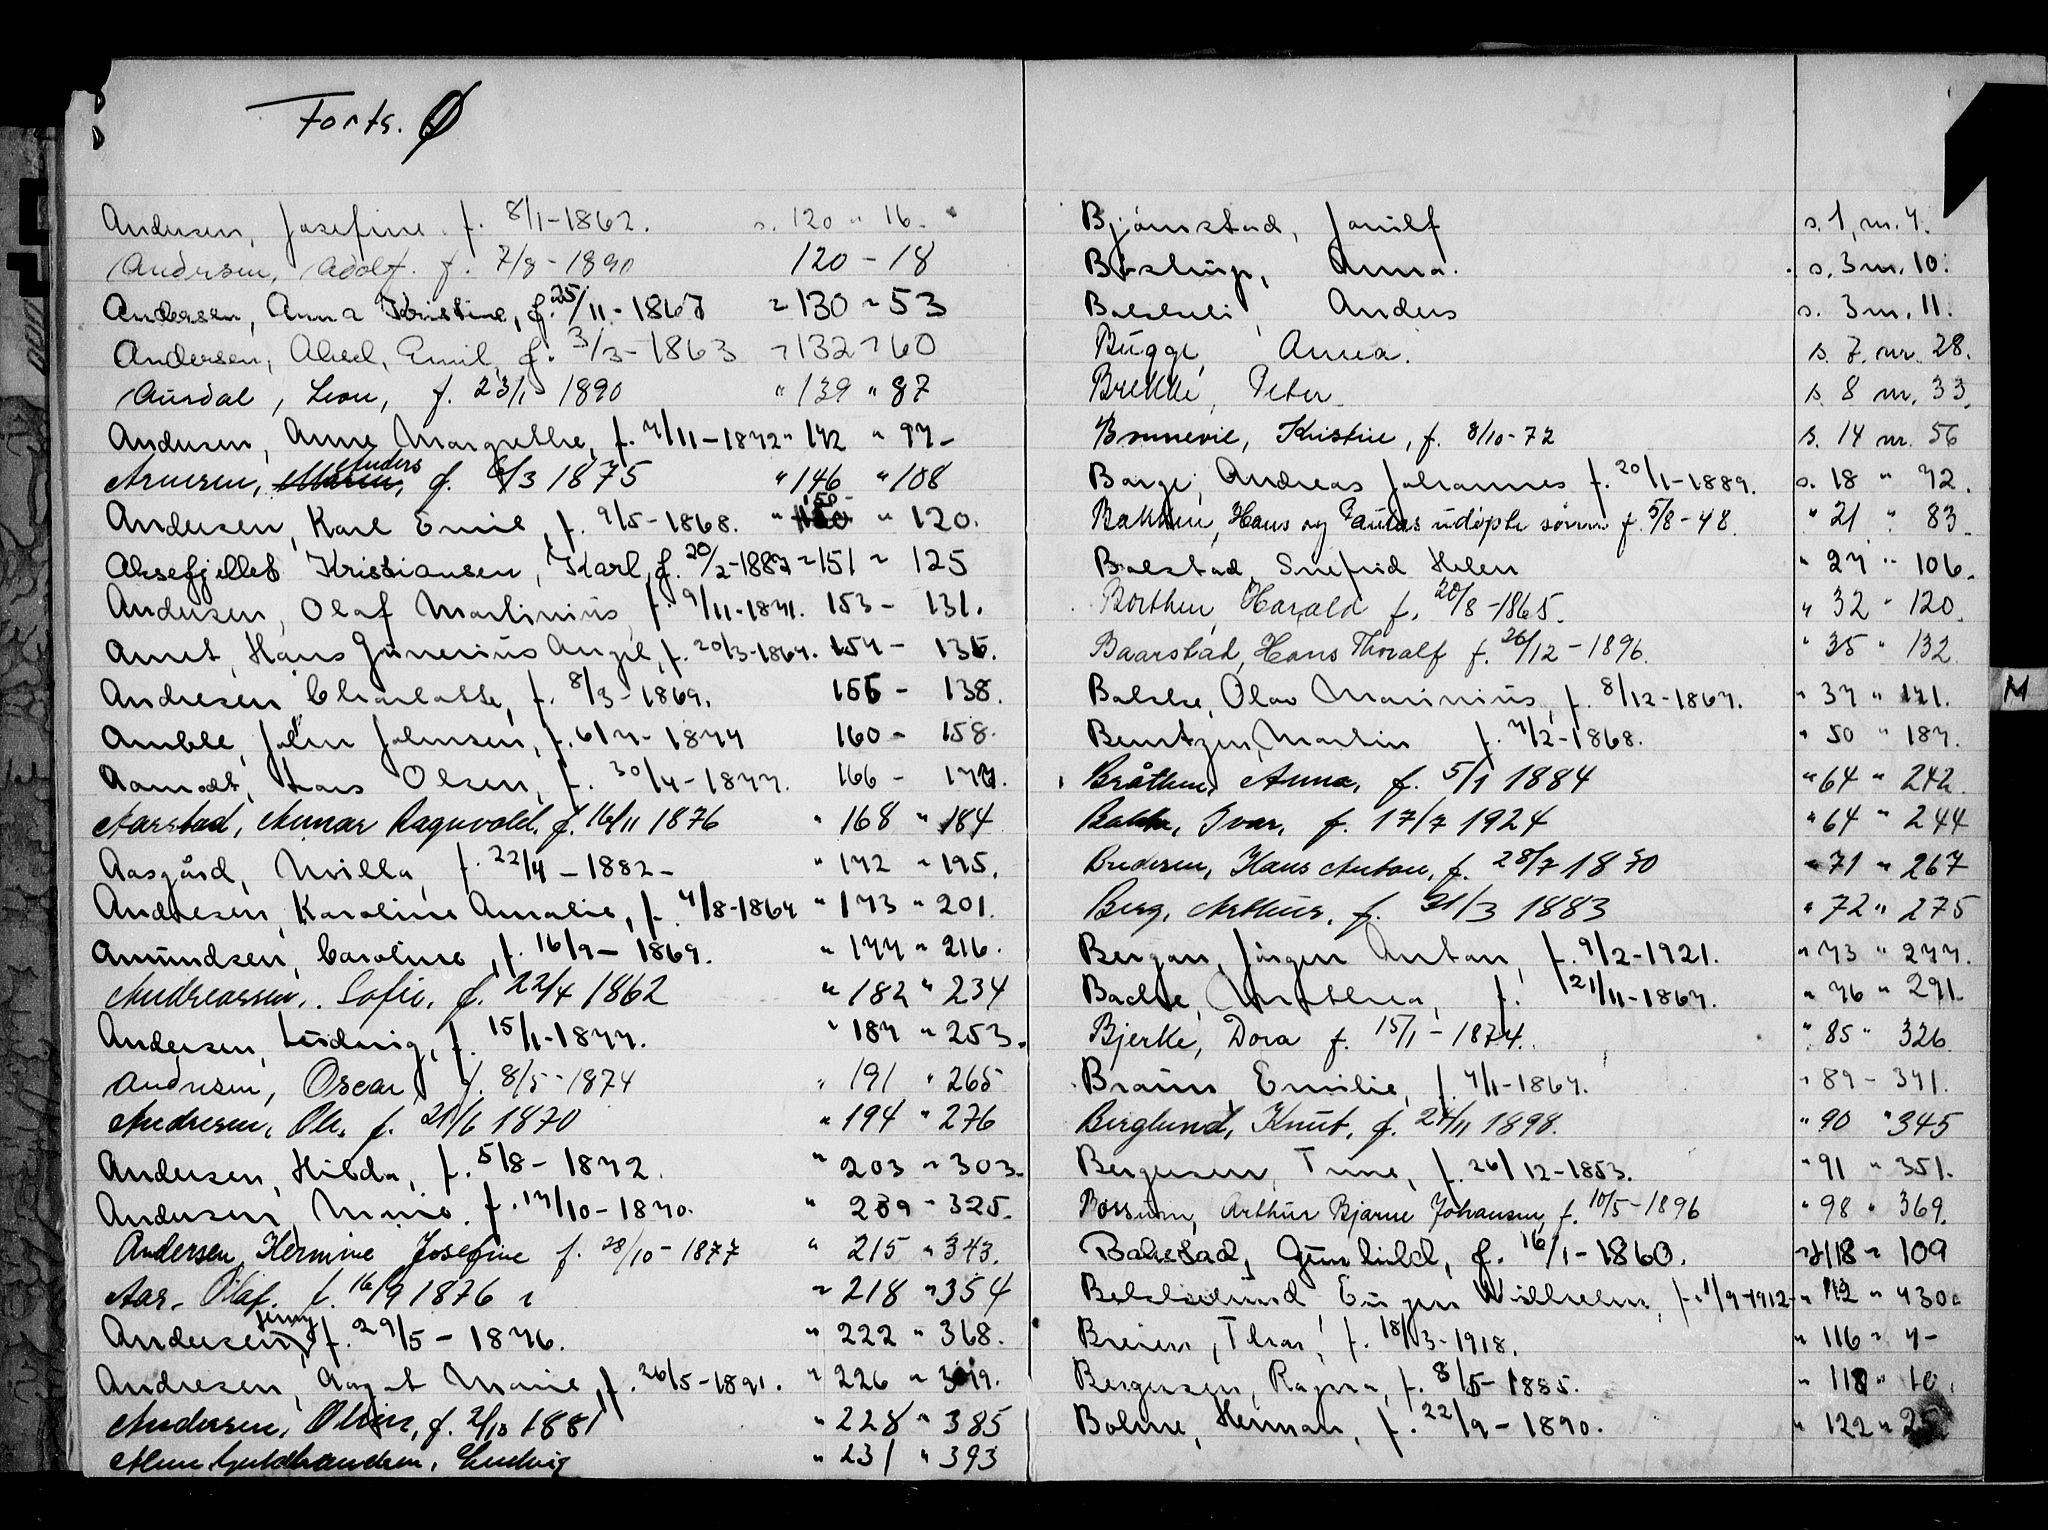 Forts. Ø
Andersen, Josefine f. 8/1-1862. s. 120 " 16.
Andersen, Adolf. f. 7/8-1890 120 - 18
Andersen, Anna Kristine, f. 25/11-1867 " 130 " 53
Andersen, Aksel, Emil, f. 3/3-1863 " 132 " 60
Aursdal, Leon, f. 23/1 1890 " 139 " 87
Andersen, Anne Margrethe, f. 7/11-1872 " 142 " 97-
Arnesen, Anders f. 6/3 1875 " 146 " 108
Andersen, Karl Emil, f. 9/5-1868. " 150 " 120.
Aksefjellet Kristiansen, Karl, f. 20/2-1887 " 151 " 125
Andersen, Olaf Martinius, f. 9/11-1871. 153 - 131.
Amet, Hans Gunerius Angel, f. 20/3-1867. 154 - 135.
Andresen Charlotte, f. 8/3-1869. 155 - 138.
Amble, John Johnsen, f. 6/7-1877 160 - 158.
Aamodt, Lars Olsen, f. 30/4-1877. 166 - 177.
Aarstad, Annar Ragnvald, f. 16/11 1876 " 168 " 184
Aasgård, Milla, f. 22/4-1882- " 172 " 195.
Andresen, Karoline Amalie, f. 4/8-1864 " 173 " 201.
Amundsen, Caroline, f. 16/9-1869. " 177 " 216.
Andreassen, Sofie, f. 22/4 1862 " 182 " 234
Andersen, Ludvig, f. 15/1-1877. " 187 " 253.
Andresen, Oscar, f. 8/5-1874 " 191 " 265
Andresen, Ole, f. 21/6 1870 " 194 " 276
Andersen, Hilda, f. 5/8-1872. " 203 " 303.
Andersen, Marie, f. 17/10-1870. " 209 " 325.
Andersen, Hermine Josefine f. 28/10-1877 " 215 " 343.
Aar, Olaf. f. 16/9 1876 " 218 " 354
Andersen, Jenny f. 29/5-1876. " 222 " 368.
Andresen, Aagot Marie, f. 26/5-1891. " 226 " 379.
Andersen, Olvin, f. 2/10 1881 " 228 " 385
Alm Guldbrandsen, Ludvig " 231 " 393
Bjørnstad, Jonilf s. 1, nr. 4.
Bostrup, Anna. s. 3 nr. 10.
Bakkeli, Anders s. 3 nr. 11.
Bugge, Anna. s. 7. nr. 28.
Brekke, Peter s. 8 nr. 33.
Brunevie, Kristine, f. 8/10-72 s. 14 nr. 56
Barge, Andreas Johannes f. 20/1-1889. s. 18 " 72.
Bakken, Hans og Paulas udøpte sønn f. 5/8-48. " 21 " 83.
Bakstad, Snefrid Helen " 27 " 106.
Borthen, Harald f. 20/8-1865. " 32 " 120.
Baarstad, Hans Thoralf f. 26/12-1896. " 35 " 132
Bakke, Olav Marinius, f. 8/12-1867. " 37 " 141.
Berntzen, Martin f. 7/2-1868. " 50 " 187.
Bråthen, Anna, f. 5/1 1884 " 64 " 242.
Bakke, Ivar, f. 17/7 1924 " 64 " 244
Bredesen, Hans Anton, f. 28/7 1870 " 71 " 267
Berg, Arthur, f. 31/3 1883 " 72 " 275
Bergan, Jørgen Anton, f. 9/2-1921. " 73 " 277.
Bache, Mathea, f. 21/11-1867. " 76 " 291.
Bjerke, Dora f. 15/1-1874. " 85 " 326.
Braun, Emilie, f. 4/1-1867. " 89 - 341.
Berglund, Knut, f. 24/11 1898. " 90 " 345
Bergersen, Trine, f. 26/12-1853. " 91 " 351.
Børssum, Arthur Bjarne Johansen, f. 10/5-1896 " 98 " 369.
Bakstad, Gunhild, f. 16/1-1860. 118 " 109
Eugen Wilhelm, f. 1/9-1912 " 112 " 430.
Breien, Thor, f. 18/3-1918. " 116 " 4-
Bergersen, Ragna, f. 8/5-1885. " 118 " 10.
Bolme, Herman, f. 22/9-1890. " 122 " 25
M